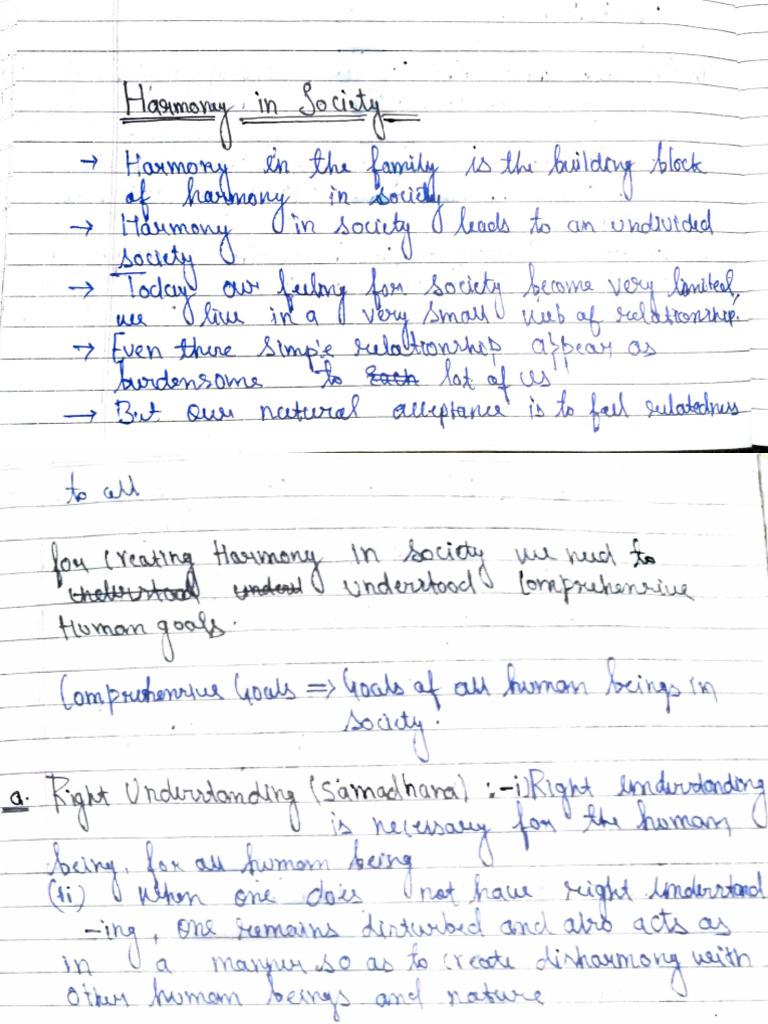 Harmony in Society
→ Harmony in the family is the building block
of harmony in society
→ Harmony in society leads to an undivided
society
→ Today our feeling for society become very limited,
we live in a very small web of relationship.
→ Even there simple relationship appear as
burdensome to each lot of us
→ But our natural acceptance is to feel relatedness
to all
for creating Harmony in society we need to
understood Comprehensive
Human goals.
Comprehensive Goals => Goals of all human beings in
society.
a. Right Understanding (Samadhana) :- i) Right understanding
is necessary for the human
being, for all human being
(ii) When one does not have right understand
-ing, one remains disturbed and also acts as
in a manner so as to create disharmony with
other human beings and nature